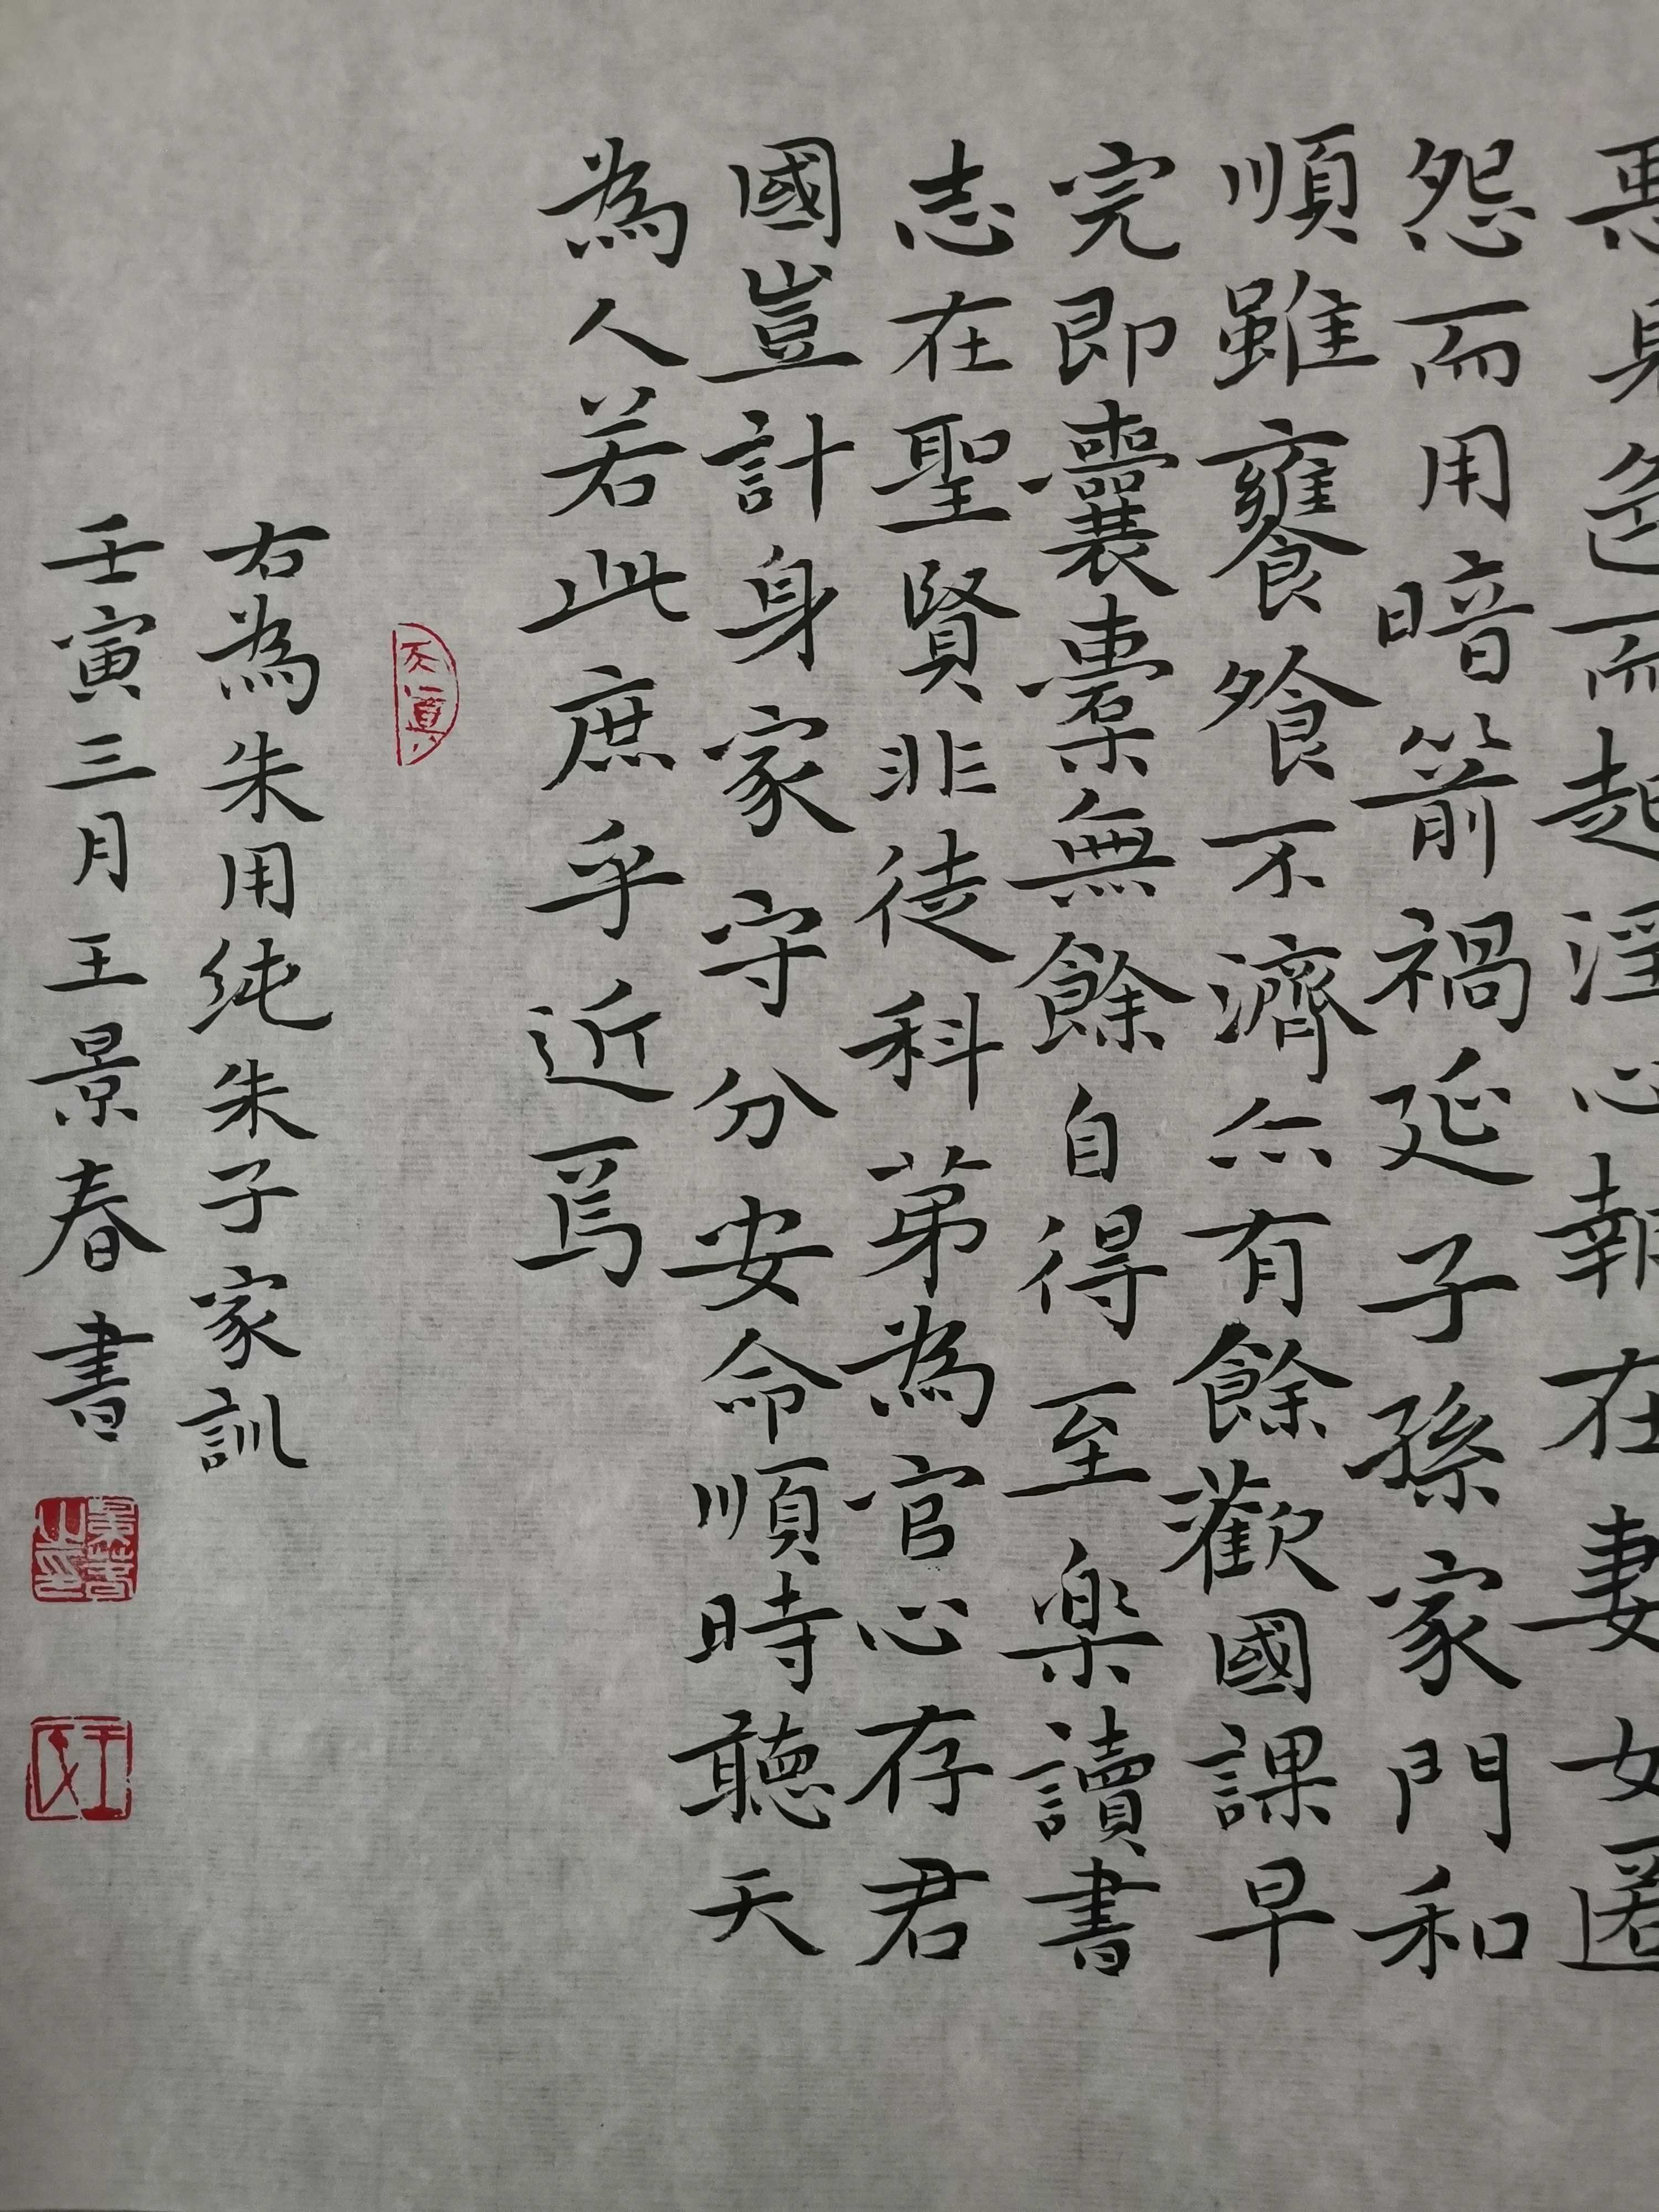 惡見色而起淫心報在妻女匿
怨而用暗箭禍延子孫家門和
順雖饔飧不濟亦有餘歡國課早
完即囊橐無餘自得至楽讀書
志在聖賢非徒科苐為官心存君
國豈計身家守分安命順時聽天
為人若此庶乎近焉
天真
右為朱用純朱子家訓
壬寅三月王景春書